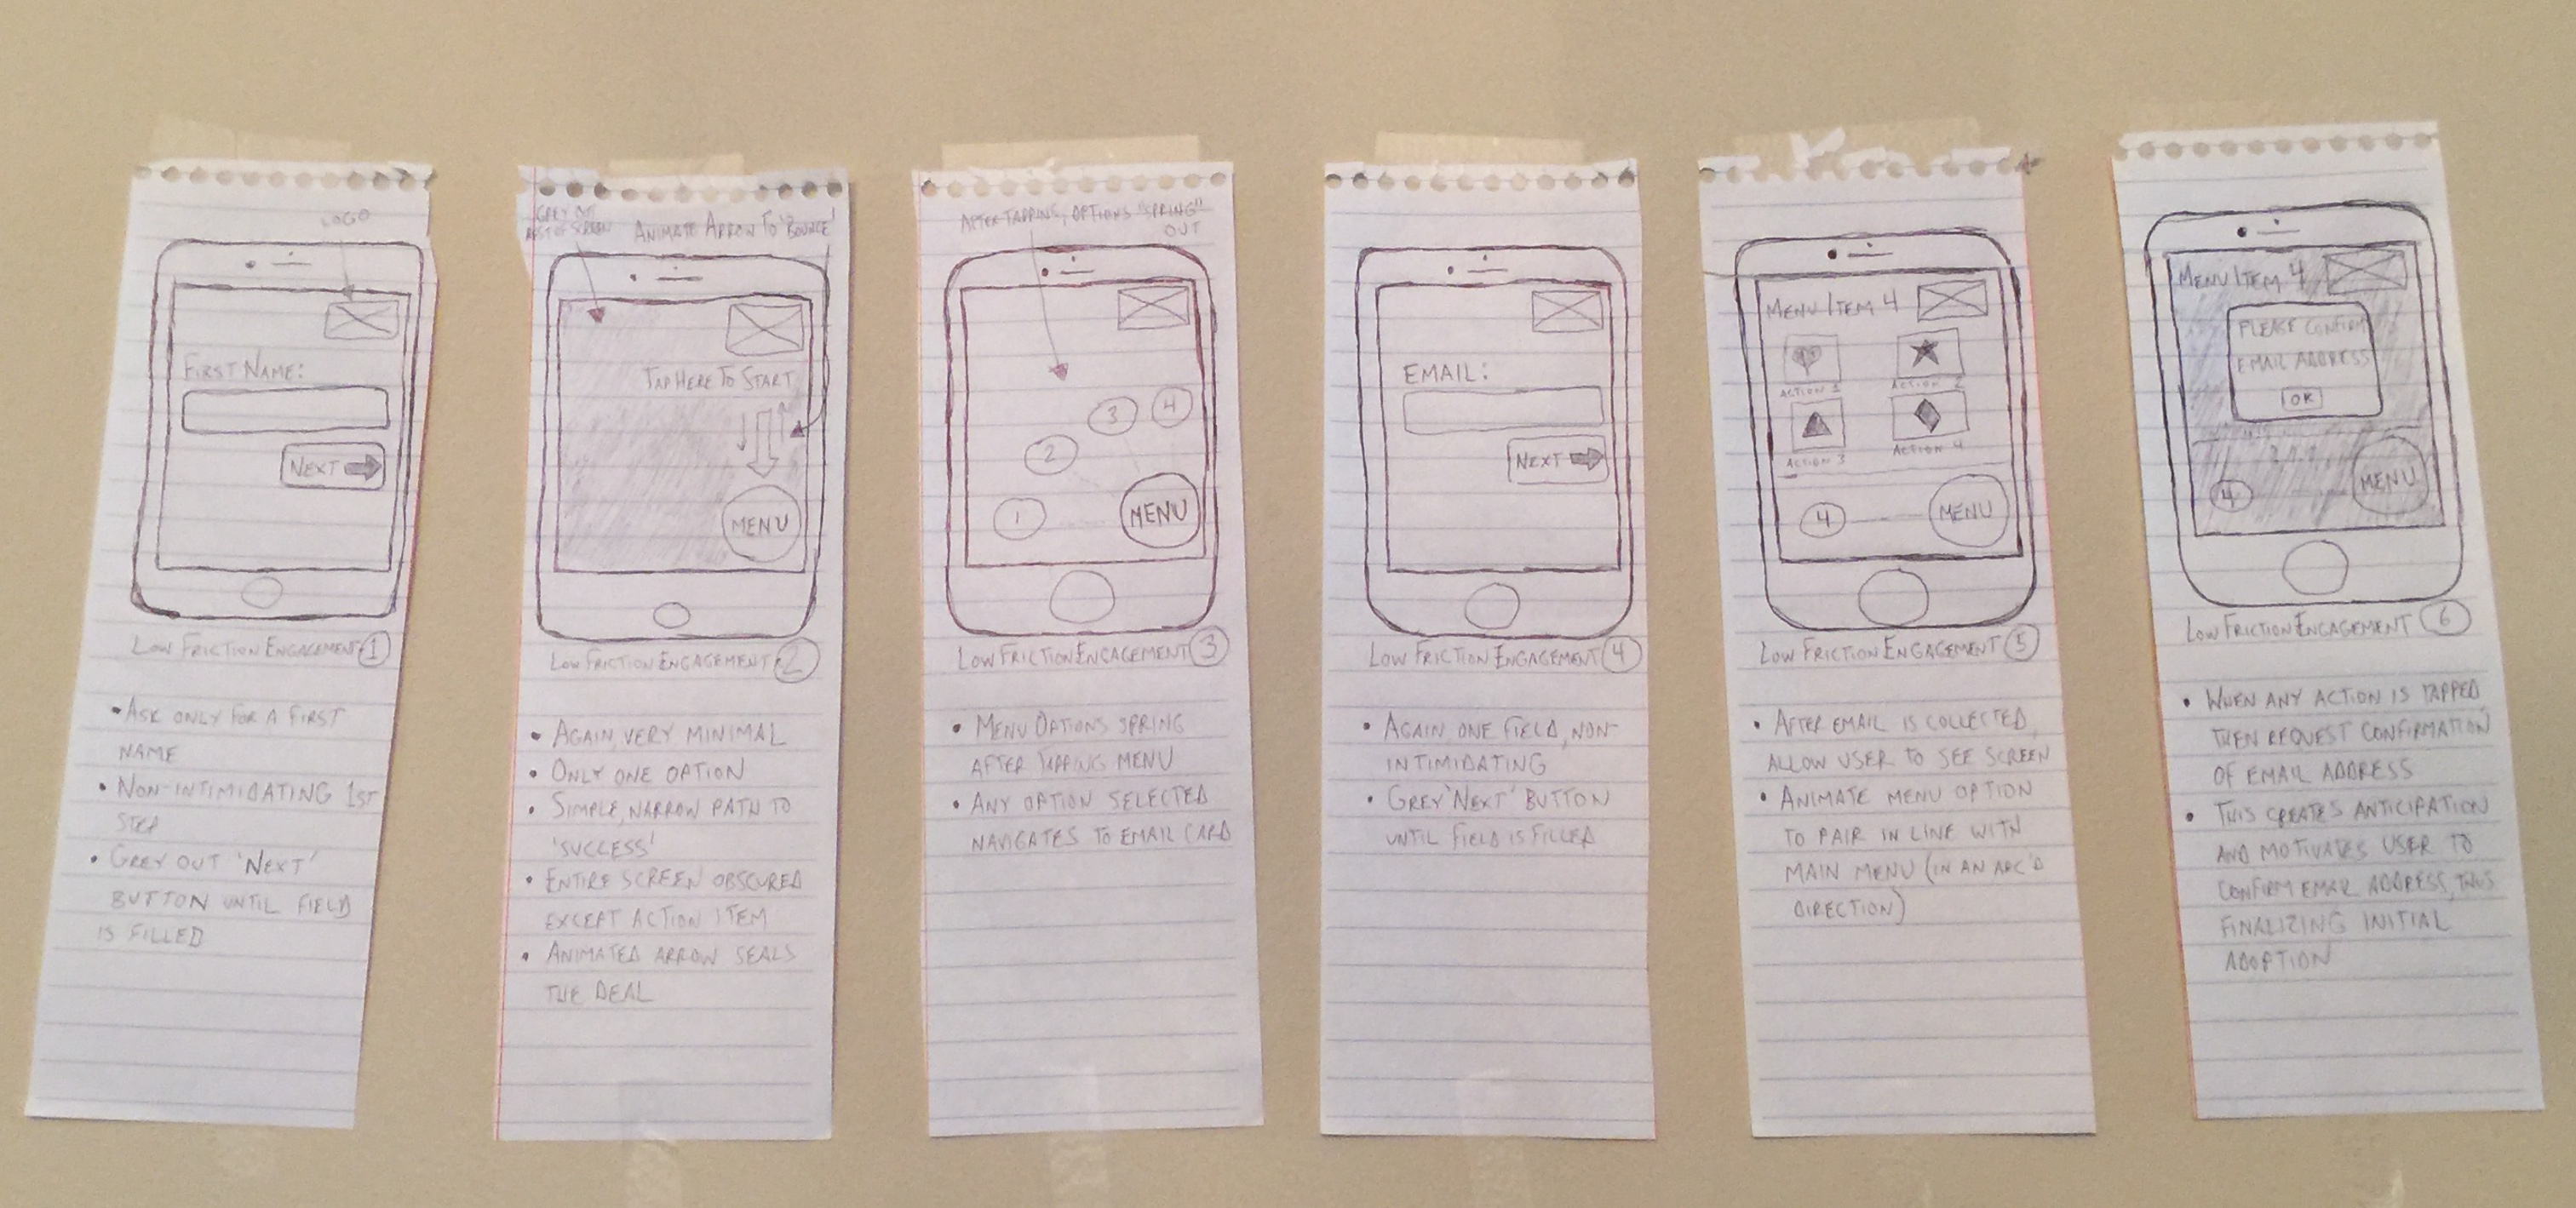 LOGO
FIRST NAME:
NEXT
LOW FRICTION ENGAGEMENT 1
• ASK ONLY FOR A FIRST
NAME
• NON-INTIMIDATING 1ST
STEP
• GREY OUT 'NEXT'
BUTTON UNTIL FIELD
IS FILLED
GREY OUT
REST OF SCREEN
ANIMATE ARROW TO 'BOUNCE'
TAP HERE TO START
MENU
LOW FRICTION ENGAGEMENT 2
• AGAIN, VERY MINIMAL
• ONLY ONE OPTION
• SIMPLE, NARROW PATH TO
'SUCCESS'
• ENTIRE SCREEN OBSCURED
EXCEPT ACTION ITEM
• ANIMATED ARROW SEALS
THE DEAL
AFTER TAPPING, OPTIONS "SPRING"
OUT
3 4
2
1
MENU
LOW FRICTION ENGAGEMENT 3
• MENU OPTIONS SPRING
AFTER TAPPING MENU
• ANY OPTION SELECTED
NAVIGATES TO EMAIL CARD
EMAIL:
NEXT
LOW FRICTION ENGAGEMENT 4
• AGAIN, ONE FIELD, NON-
INTIMIDATING
• GREY 'NEXT' BUTTON
UNTIL FIELD IS FILLED
MENU ITEM 4
ACTION 1 ACTION 2
ACTION 3 ACTION 4
4 MENU
LOW FRICTION ENGAGEMENT 5
• AFTER EMAIL IS COLLECTED,
ALLOW USER TO SEE SCREEN
• ANIMATE MENU OPTION
TO PAIR IN LINE WITH
MAIN MENU (IN AN ARC'D
DIRECTION)
MENU ITEM 4
PLEASE CONFIRM
EMAIL ADDRESS
OK
4 MENU
LOW FRICTION ENGAGEMENT 6
• WHEN ANY ACTION IS TAPPED,
THEN REQUEST CONFIRMATION
OF EMAIL ADDRESS
• THIS CREATES ANTICIPATION
AND MOTIVATES USER TO
CONFIRM EMAIL ADDRESS, THUS
FINALIZING INITIAL
ADOPTION